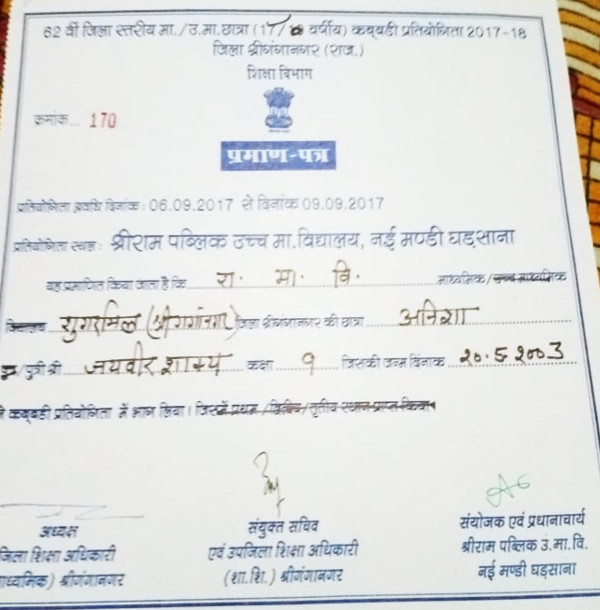 62 वीं जिला स्तरीय मा./उ.मा.छात्रा (17/ वर्षीय) कबड्डी प्रतियोगिता 2017-18
जिला श्रीगंगानगर (राज.)
शिक्षा विभाग
क्रमांक... 170
प्रमाण-पत्र
प्रतियोगिता अवधि दिनांक : 06.09.2017 से दिनांक 09.09.2017
प्रतियोगिता स्थल : श्रीराम पब्लिक उच्च मा.विद्यालय, नई मण्डी घड़साना
यह प्रमाणित किया जाता है कि रा. मा. वि. माध्यमिक/उच्च माध्यमिक
विद्यालय शुगरमिल (श्रीगगांनगर) जिला श्रीगंगानगर की छात्रा अनिशा
/पुत्री श्री जयवीर शाक्य कक्षा 9 जिसकी जन्म दिनांक २०.5.२००3
ने कबड्डी प्रतियोगिता में भाग लिया। जिसमें प्रथम /द्वितीय/तृतीय स्थान प्राप्त किया।
अध्यक्ष
जिला शिक्षा अधिकारी
माध्यमिक) श्रीगंगानगर
संयुक्त सचिव
एवं उपजिला शिक्षा अधिकारी
(शा.शि.) श्रीगंगानगर
संयोजक एवं प्रधानाचार्य
श्रीराम पब्लिक उ.मा.वि.
नई मण्डी घड़साना